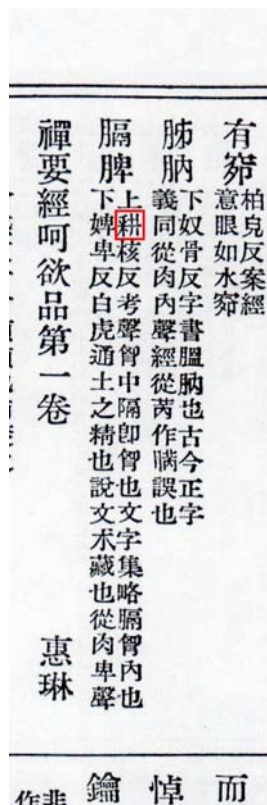 有窌柏皃反案經
意眼如水窌
胏肭下奴骨反字書膃肭也古今正字
義同從肉內聲經從芮作誤也
膈脾上耕核反考聲胷中隔卽胷也文字集略膈胷內也
下婢卑反白虎通土之精也說文朩藏也從肉卑聲
禪要經呵欲品第一卷 惠琳
而
悼
鑰